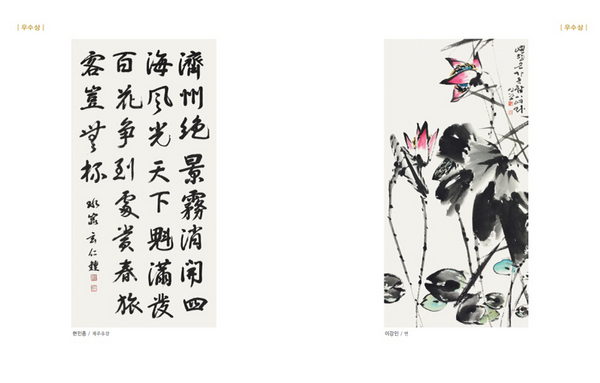 | 우수상 |
| 우수상 |
濟州絶景霧消開四
海風光天下魁滿發
百花爭到處賞春旅
客豈無杯
玄仁鍾
현인종 / 제주유감
이강민 / 연